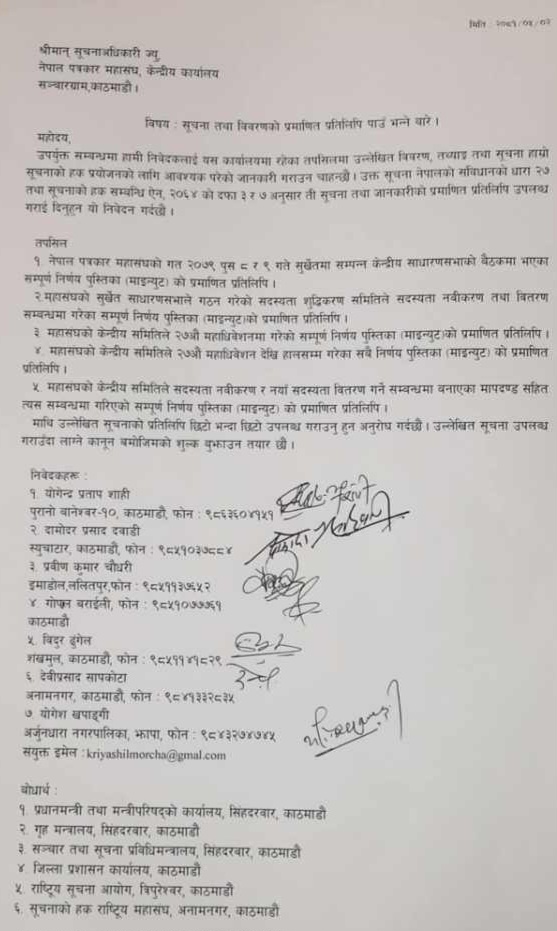 मिति : २०८१/०४/०२
श्रीमान् सूचनाअधिकारी ज्यू,
नेपाल पत्रकार महासंघ, केन्द्रीय कार्यालय
सञ्चारग्राम,काठमाडौ ।
विषय : सूचना तथा विवरणको प्रमाणित प्रतिलिपि पाउँ भन्ने बारे ।
महोदय,
उपर्युक्त सम्बन्धमा हामी निवेदकलाई यस कार्यालयमा रहेका तपसिलमा उल्लेखित विवरण, तथ्याङ्क तथा सूचना हाम्रो
सूचनाको हक प्रयोजनको लागि आवश्यक परेको जानकारी गराउन चाहन्छौ । उक्त सूचना नेपालको संविधानको धारा २७
तथा सूचनाको हक सम्बन्धि ऐन, २०६४ को दफा ३ र ७ अनुसार ती सूचना तथा जानकारीको प्रमाणित प्रतिलिपि उपलब्ध
गराई दिनुहुन यो निवेदन गर्दछौ ।
तपसिल
१. नेपाल पत्रकार महासंघको गत २०७९ पुस ८ र ९ गते सुर्खेतमा सम्पन्न केन्द्रीय साधारणसभाको बैठकमा भएका
सम्पूर्ण निर्णय पुस्तिका (माइन्युट) को प्रमाणित प्रतिलिपि ।
२.महासंघको सुर्खेत साधारणसभाले गठन गरेको सदस्यता शुद्धिकरण समितिले सदस्यता नवीकरण तथा वितरण
सम्बन्धमा गरेका सम्पूर्ण निर्णय पुस्तिका (माइन्युट)को प्रमाणित प्रतिलिपि ।
३. महासंघको केन्द्रीय समितिले २७औ महाधिवेशनमा गरेको सम्पूर्ण निर्णय पुस्तिका (माइन्युट)को प्रमाणित प्रतिलिपि ।
४. महासंघको केन्द्रीय समितिले २७औ महाधिवेशन देखि हालसम्म गरेका सबै निर्णय पुस्तिका (माइन्युट) को प्रमाणित
प्रतिलिपि ।
५ महासंघको केन्द्रीय समितिले सदस्यता नवीकरण र नयाँ सदस्यता वितरण गर्ने सम्बन्धमा बनाएका मापदण्ड सहित
त्यस सम्बन्धमा गरिएको सम्पूर्ण निर्णय पुस्तिका (माइन्युट) को प्रमाणित प्रतिलिपि ।
माथि उल्लेखित सूचनाको प्रतिलिपि छिटो भन्दा छिटो उपलब्ध गराउनु हुन अनुरोध गर्दछौ । उल्लेखित सूचना उपलब्ध
गराउँदा लाग्ने कानून बमोजिमको शुल्क बुझाउन तयार छौ ।
निवेदकहरू :
१. योगेन्द्र प्रताप शाही
पुरानो बानेश्वर-१०, काठमाडौ, फोन : ९८६३६०४१५१
२. दामोदर प्रसाद दवाडी
स्युचाटार, काठमाडौ, फोन : ९८५१०३७८८४
३. प्रवीण कुमार चौधरी
इमाडोल,ललितपुर,फोन : ९८५११३७६५२
४. गोपाल बराईली, फोन : ९८५१०७७७६१
काठमाडौ
५. विदुर ढुंगेल
शंखमुल, काठमाडौ, फोन : ९८५११४१८२९
६. देवीप्रसाद सापकोटा
अनामनगर, काठमाडौ, फोन : ९८४१३३२८३५
७. योगेश खपाङ्गी
अर्जुनधारा नगरपालिका, झापा, फोन : ९८४३२७४७४५
संयुक्त इमेल :kriyashilmorcha@gmal.com
बोधार्थ :
१. प्रधानमन्त्री तथा मन्त्रीपरिषद्को कार्यालय, सिंहदरवार, काठमाडौ
२. गृह मन्त्रालय, सिंहदरवार, काठमाडौ
३. सञ्चार तथा सूचना प्रविधिमन्त्रालय, सिंहदरवार, काठमाडौ
४ जिल्ला प्रशासन कार्यालय, काठमाडौ
५. राष्ट्रिय सूचना आयोग, त्रिपुरेश्वर, काठमाडौ
६. सूचनाको हक राष्ट्रिय महासंघ, अनामनगर, काठमाडौ